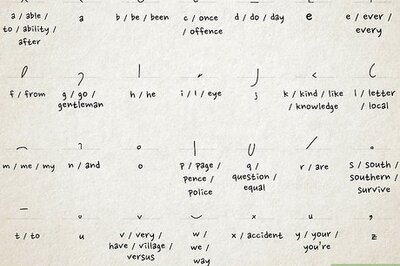 a / able / to / ability / after
a
b / be / been
c / once / offence
d / do / day
e
e / ever / every
f / from
g / go / gentleman
h / he
i / I / eye
j
k / kind / like / knowledge
l / letter / local
m / me / my
n / and
o
p / page / pence / police
q / question / equal
r / are
s / south / southern / survive
t / to
u
v / very / have / village / versus
w / we / way
x / accident
y / your / you're
z